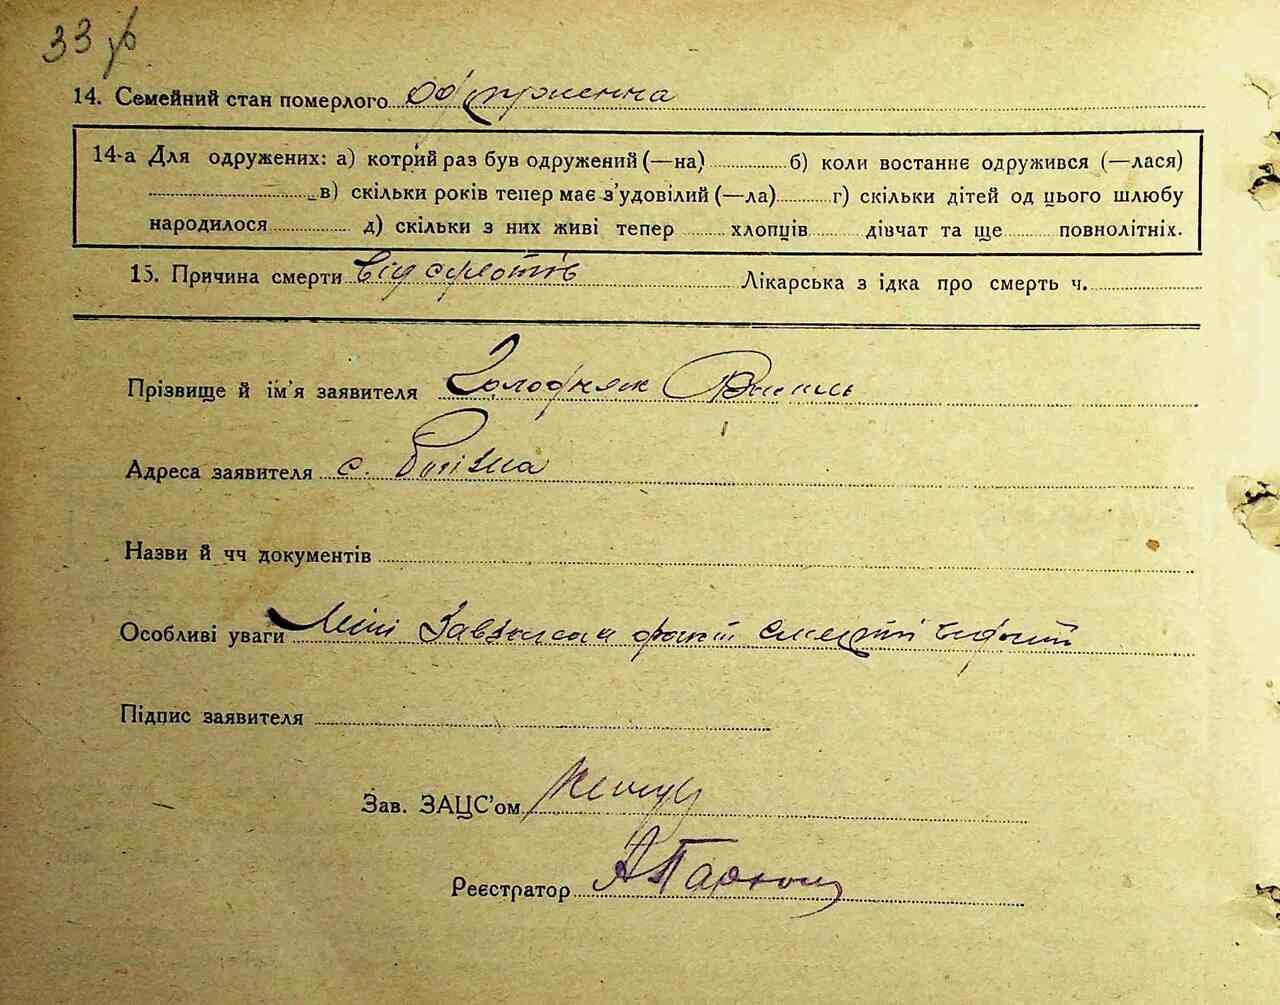 33
14. Семейний стан померлого одружена
14-а Для одружених: а) котрий раз був одружений (—на) б) коли востаннє одружився (—лася)
в) скільки років тепер має з'удовілий (—ла) г) скільки дітей од цього шлюбу
народилося д) скільки з них живі тепер хлопців дівчат та ще повнолітніх.
15. Причина смерти від Лікарська з ідка про смерть ч.
Прізвище й ім'я заявителя Холодняк
Адреса заявителя с.
Назви й чч документів
Особливі уваги факт смерти
Підпис заявителя
Зав. ЗАЦС'ом
Реєстратор